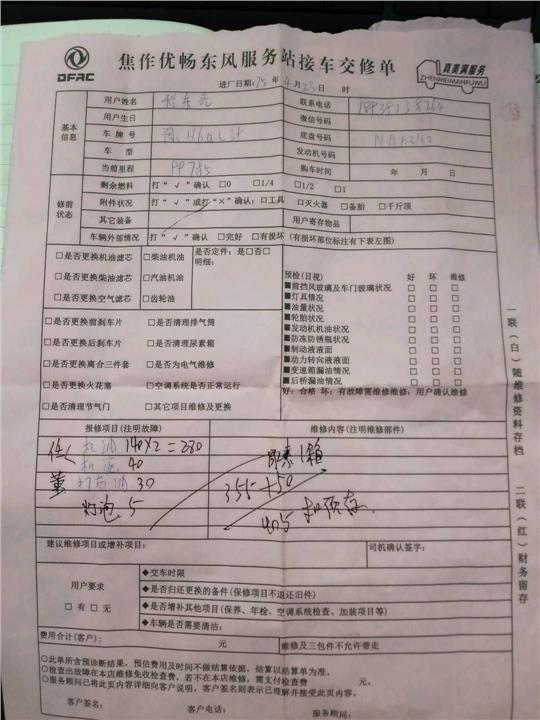 DFAC
焦作优畅东风服务站接车交修单
真美满服务
ZHENMEIMANFUWU
进厂日期: 25 年 4 月 23 日 时
基本信息
用户姓名
联系电话
用户生日
微信号码
车牌号
底盘号码
车型
发动机号码
当前里程
购车时间 年 月 日
修前状态
剩余燃料 打“√”确认 □0 □1/4 □1/2 □1
附件状况 打“√”或打“×”确认: □工具 □灭火器 □备胎 □千斤顶
其它装备
用户寄存物品
车辆外部情况 打“√”确认 □完好 □有损坏(有损坏部位标注有下表左图)
□是否更换机油滤芯 □柴油机油
□是否更换柴油滤芯 □汽油机油
□是否更换空气滤芯 □齿轮油
是否定件: 是□否□
明细:
□是否更换前刹车片 □是否清理排气筒
□是否更换后刹车片 □是否清理尿素箱
□是否更换离合三件套 □是否为电气维修
□是否更换火花塞 □空调系统是否正常运行
□是否清理节气门 □其它项目维修及更换
预检(目视) 好 坏 维修
■前挡风玻璃及车门玻璃状况 □ □ □
■灯具情况 □ □ □
■油量状况 □ □ □
■轮胎状况 □ □ □
■发动机机油状况 □ □ □
■防冻防锈瓶状况 □ □ □
■制动液液面 □ □ □
■动力转向液液面 □ □ □
■变速箱漏油情况 □ □ □
■后桥漏油情况 □ □ □
好: 合格 坏: 有故障需维修维修: 用户确认维修
报修项目(注明故障)
维修内容(注明维修部件)
机油 140×2=280
机滤 40
30
灯泡 5
尿素1箱
355+50
405
建议维修项目或增补项目:
司机确认签字:
用户要求
□有 □无
◆交车时限
◆是否归还更换的备件(保修项目不退还旧件)
◆是否增补其他项目(保养、年检、空调系统检查、加装项目等)
◆车辆是否需要清洁:
费用合计(客户): 元
维修及三包件不允许带走
○此单所含预诊断结果, 预估费用及时间不做结算依据, 结算以结算单为准。
○检查出故障在本店维修免收检查费, 若不在本店维修, 需支付检查费 元。
○服务顾问已将此页内容详细向客户说明, 客户签名则表示已理解并接受此页内容。
客户签名: 客户电话: 服务顾问:
一联(白)随维修资料存档
二联(红)财务留存